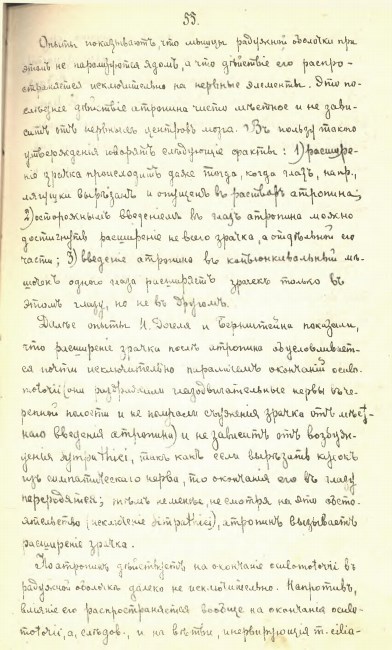 55.
Опыты показываютъ, что мышцы радужной оболочки при
этомъ не парализуются ядомъ, а что дѣйствіе его распро-
страняется исключительно на нервные элементы. Это по-
слѣднее дѣйствіе атропина чисто мѣстное и не зави-
ситъ отъ нервныхъ центровъ мозга. Въ пользу такого
утвержденія говорятъ слѣдующіе факты: 1) расшире-
ніе зрачка происходитъ даже тогда, когда глазъ, напр.,
лягушки вырѣзанъ и опущенъ въ растворъ атропина;
2) осторожнымъ введеніемъ въ глазъ атропина можно
достигнуть расширеніе не всего зрачка, а отдѣльной его
части; 3) введеніе атропина въ конъюнктивальный мѣ-
шочекъ одного глаза расширяетъ зрачекъ только въ
этомъ глазу, но не въ другомъ.
Далѣе опыты И. Догеля и Бернштейна показали,
что расширеніе зрачка послѣ атропина обусловливает-
ся почти исключительно параличемъ окончаній oculo-
motorii (они раздражали глазодвигательные нервы въ че-
репной полости и не
съуженія зрачка отъ мѣст-
наго введенія атропина) и не зависитъ отъ возбуж-
денія sympathici, такъ какъ если вырѣзать кусокъ
изъ симпатическаго нерва, то окончанія его въ глазу
переродятся; тѣмъ не менѣе, не смотря на это обсто-
ятельство (исключеніе simpathici), атропинъ вызываетъ
расширеніе зрачка.
Но атропинъ дѣйствуетъ на окончаніе oculomotorii въ
радужной оболочкѣ далеко не исключительно. Напротивъ,
вліяніе его распространяется вообще на окончанія oculo-
motorii, а, слѣдов., и на вѣтви, инервирующія m. cilia-